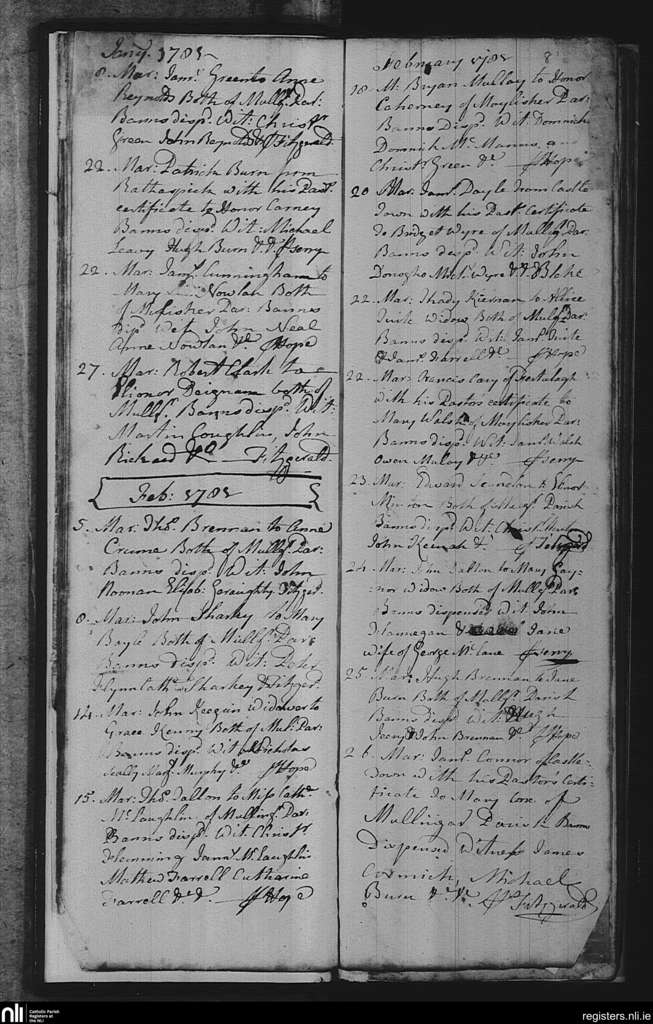 Janry. 1782
8. Mar: Jams. Green to Anne
Reynolds Both of Mullr. Par:
Banns dispd. Wit: Christr.
Green John Reynolds &c Fitzgerald
22. Mar: Patrick Burn from
Rathaspick with his Pastrs
certificate to Honor Carney
Banns dispd. Wit: Michael
Leavy Hugh Burn &c.
22. Mar: Jams. Cunningham to
Mary Nowlan Both
of Par: Banns
dispd. Wit John Neal
Anne Nowlan &c Hope
27. Mar: Robert Clark to
Elionor Deignam both of
Mullr. Banns dispd. Wit:
Martin Coughlin, John
Rickard &c Fitzgerald
Feb: 1782
5. Mar: Thos. Brennan to Anne
Crume Both of Mullr. Par:
Banns dispd. Wit: John
Noonan Elizab: Geraughty Fitzger.
8. Mar: John Sharkey to Mary
Boyle Both of Mullr. Par:
Banns dispd. Wit: Peter
Flynn Cathe. Sharkey Fitzger.
14. Mar: John Keegan Widower to
Grace Kenny Both of Mul. Par:
Banns dispd. Wit Nicholas
Murphy &c Hope
15. Mar: Thos. Dalton to Miss Cathe.
McLaughlin of Mullingr. Par:
Banns dispd. Wit Christr.
Flemming James McLaughlin
Mathew Farrell Catharine
Farrell &c &c. Hope
February 1782 8
18. M: Bryan Mullay to Honor
of Moylisker Par:
Banns Dispd. Wit: Dominick
Dominick McManus and
Christr. Green &c Hope
20 Mar: Jams. Doyle from Castle
town with his Pastrs. Certificate
to Bridget Wyre of Mullr. Par:
Banns dispd. Wit: John
Donogho Mich. Wyre &c
22. Mar: Thady Kiernan to Alice
Tuite Widow Both of Mullr. Par:
Banns dispd. Wit: Jams. Tuite
& Jams. Farrell &c. Hope
22. Mar: Francis Cary of
with his Pastor's certificate to
Mary Walsh of Moylisker Par:
Banns dispd. Wit. Jams. Walsh
Owen Mulay &c.
23. Mar: Edward to
Both of this Parish
Banns dispd Wit:
John &c.
24. Mar: John Dalton to Mary Gay-
nor Widow Both of Mullr. Par:
Banns dispensed Wit John
Flannegan & Jane
wife of George McCane
25. Mar: Hugh Brennan to Jane
Burn Both of Mullr. Parish
Banns dispd. Wit: Hugh
& John Brennan &c Hope
26. Mar: Jams. Connor of Castle-
town with his Pastor's Certi-
ficate to Mary of
Mullingar Parish Banns
Dispensed Witness James
Cormick, Michael
Burn &c. &c. Fitzgerald
nli Catholic Parish
Registers at
the NLI
registers.nli.ie